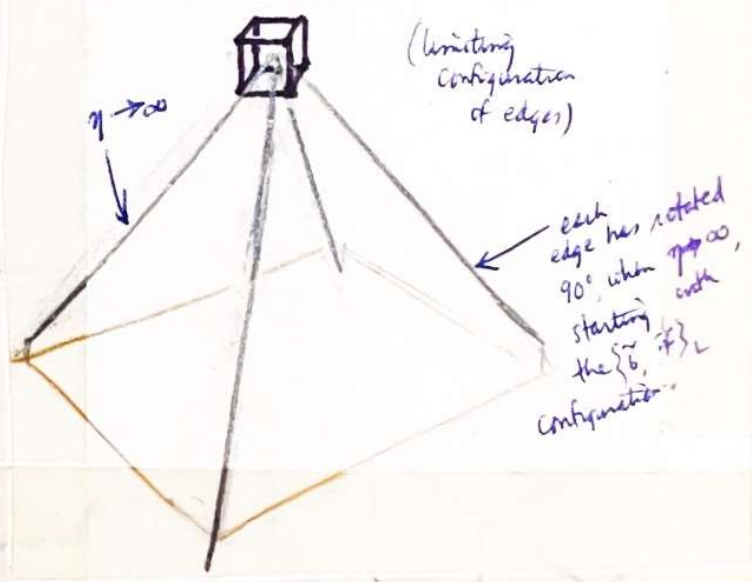 (limiting
configuration
of edges)
η → ∞
each
edge has rotated
90°, when η → ∞,
starting with
the {6̃,
configuration.